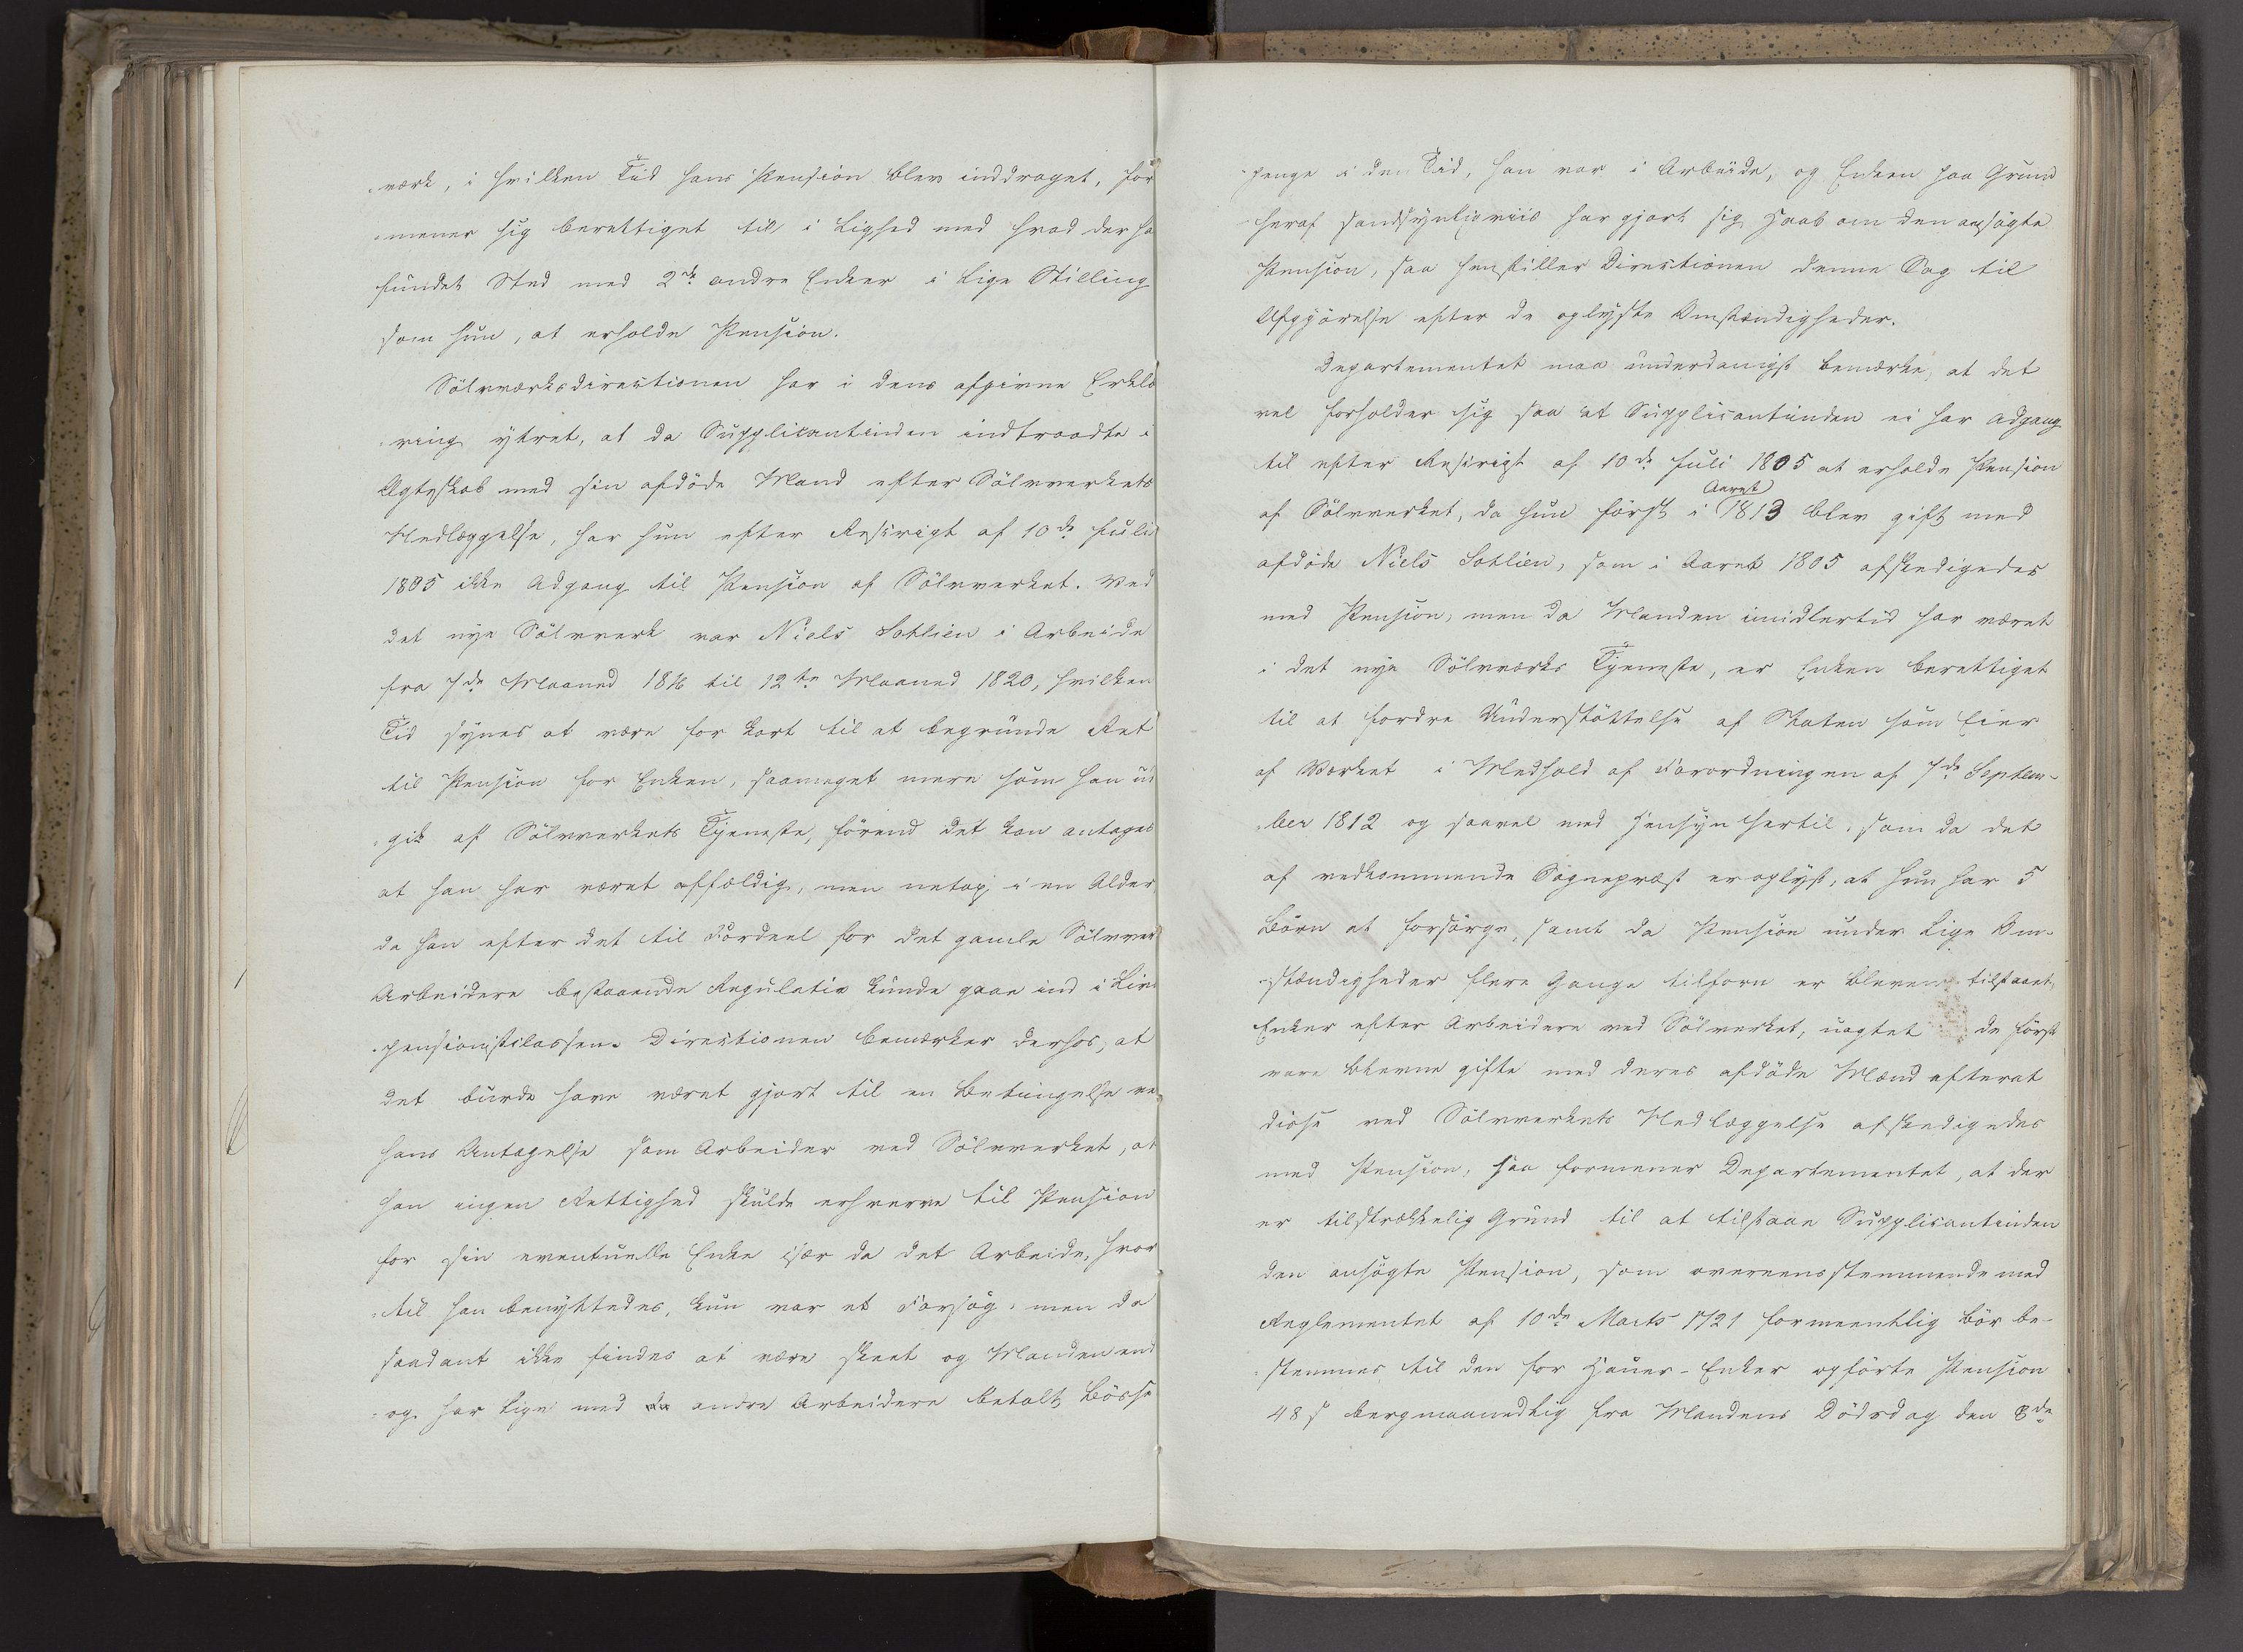 værk, i hvilken Tid hans Pension blev inddraget, for
=mener sig berettiget til, i Lighed med hvad der ha
fundet Sted med 2de andre Enker i lige Stilling
som hun, at erholde Pension.
Sölvværksdirectionen har i dens afgivne Erklæ
=ring ytret, at da Supplicantinden indtraadte i
Ægteskab med sin afdöde Mand efter Sölvverkets
Nedlæggelse, har hun efter Rescript af 10de Juli
1805 ikke Adgang til Pension af Sölvverket. Ved
det nye Sölvverk var Niels Sohlien i Arbeide
fra 7de Maaned 1816 til 12te Maaned 1820, hvilken
Tid synes at være for kort til at begrunde Ret
til Pension for Enken, saameget mere som han ud
=gik af Sölvverkets Tjeneste, förend det kan antages
at han har været affældig, men netop i en Alder,
da han efter det til Fordeel for det gamle Sölvver
Arbeidere bestaaende Regulativ kunde gaae ind i Liv
=pensionistclassen. Directionen bemærker derhos, at
det burde have været gjort til en Betingelse ve
hans Antagelse som Arbeider ved Sölvverket, at
han ingen Rettighed skulde erhverve til Pension
for sin eventuelle Enke især da det Arbeide, hvor
=til han benyttedes, kun var et Forsög; men da
saadant ikke findes at være skeet og Manden end
=og har lige med de andre Arbeidere betalt Bösse
=penge i den Tid, han var i Arbeide, og Enken paa Grund
heraf sandsynligviis har gjort sig Haab om den ansögte
Pension, saa henstiller Directionen denne Sag til
Afgjörelse efter de oplyste Omstændigheder.
Departementet maa underdanigst bemærke, at det
vel forholder sig saa at Supplicantinden ei har Adgang
til efter Rescript af 10de Juli 1805 at erholde Pension
af Sölvverket, da hun först i Aaret 1813 blev gift med
afdöde Niels Sohlien, som i Aaret 1805 afskedigedes
med Pension; men da Manden imidlertid har været
i det nye Sölvværks Tjeneste, er Enken berettiget
til at fordre Understöttelse af Staten som Eier
af Værket i Medhold af Forordningen af 7de Septem-
=ber 1812 og saavel med Hensyn hertil, som da det
af vedkommende Sognepræst er oplyst, at hun har 5
Börn at forsörge, samt da Pension under lige Om-
=stændigheder flere Gange tilforn er bleven tilstaaet
Enker efter Arbeidere ved Sölvverket, uagtet de först
vare blevne gifte med deres afdöde Mænd efterat
disse ved Sölvverkets Nedlæggelse afskedigedes
med Pension, saa formener Departementet, at der
er tilstrækkelig Grund til at tilstaae Supplicantinden
den ansögte Pension, som overeensstemmende med
Reglementet af 10de Marts 1721 formeentlig bör be-
=stemmes til den for Hauer-Enker opförte Pension
48 s bergmaanedlig fra Mandens Dödsdag den 8de